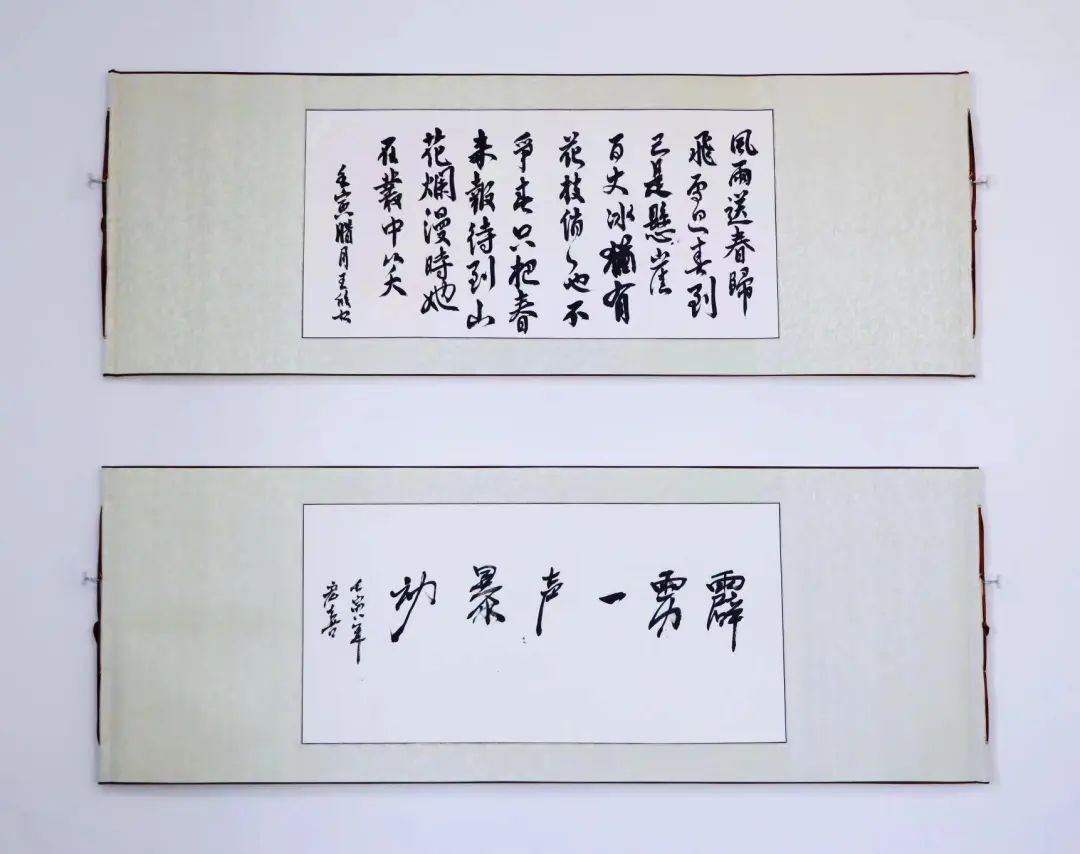 風雨送春歸
飛雪迎春到
已是懸崖
百丈冰猶有
花枝俏也不
爭春只把春
来報待到山
花爛漫時她
在叢中笑
壬寅腊月王
霹雳一声暴动
壬寅年